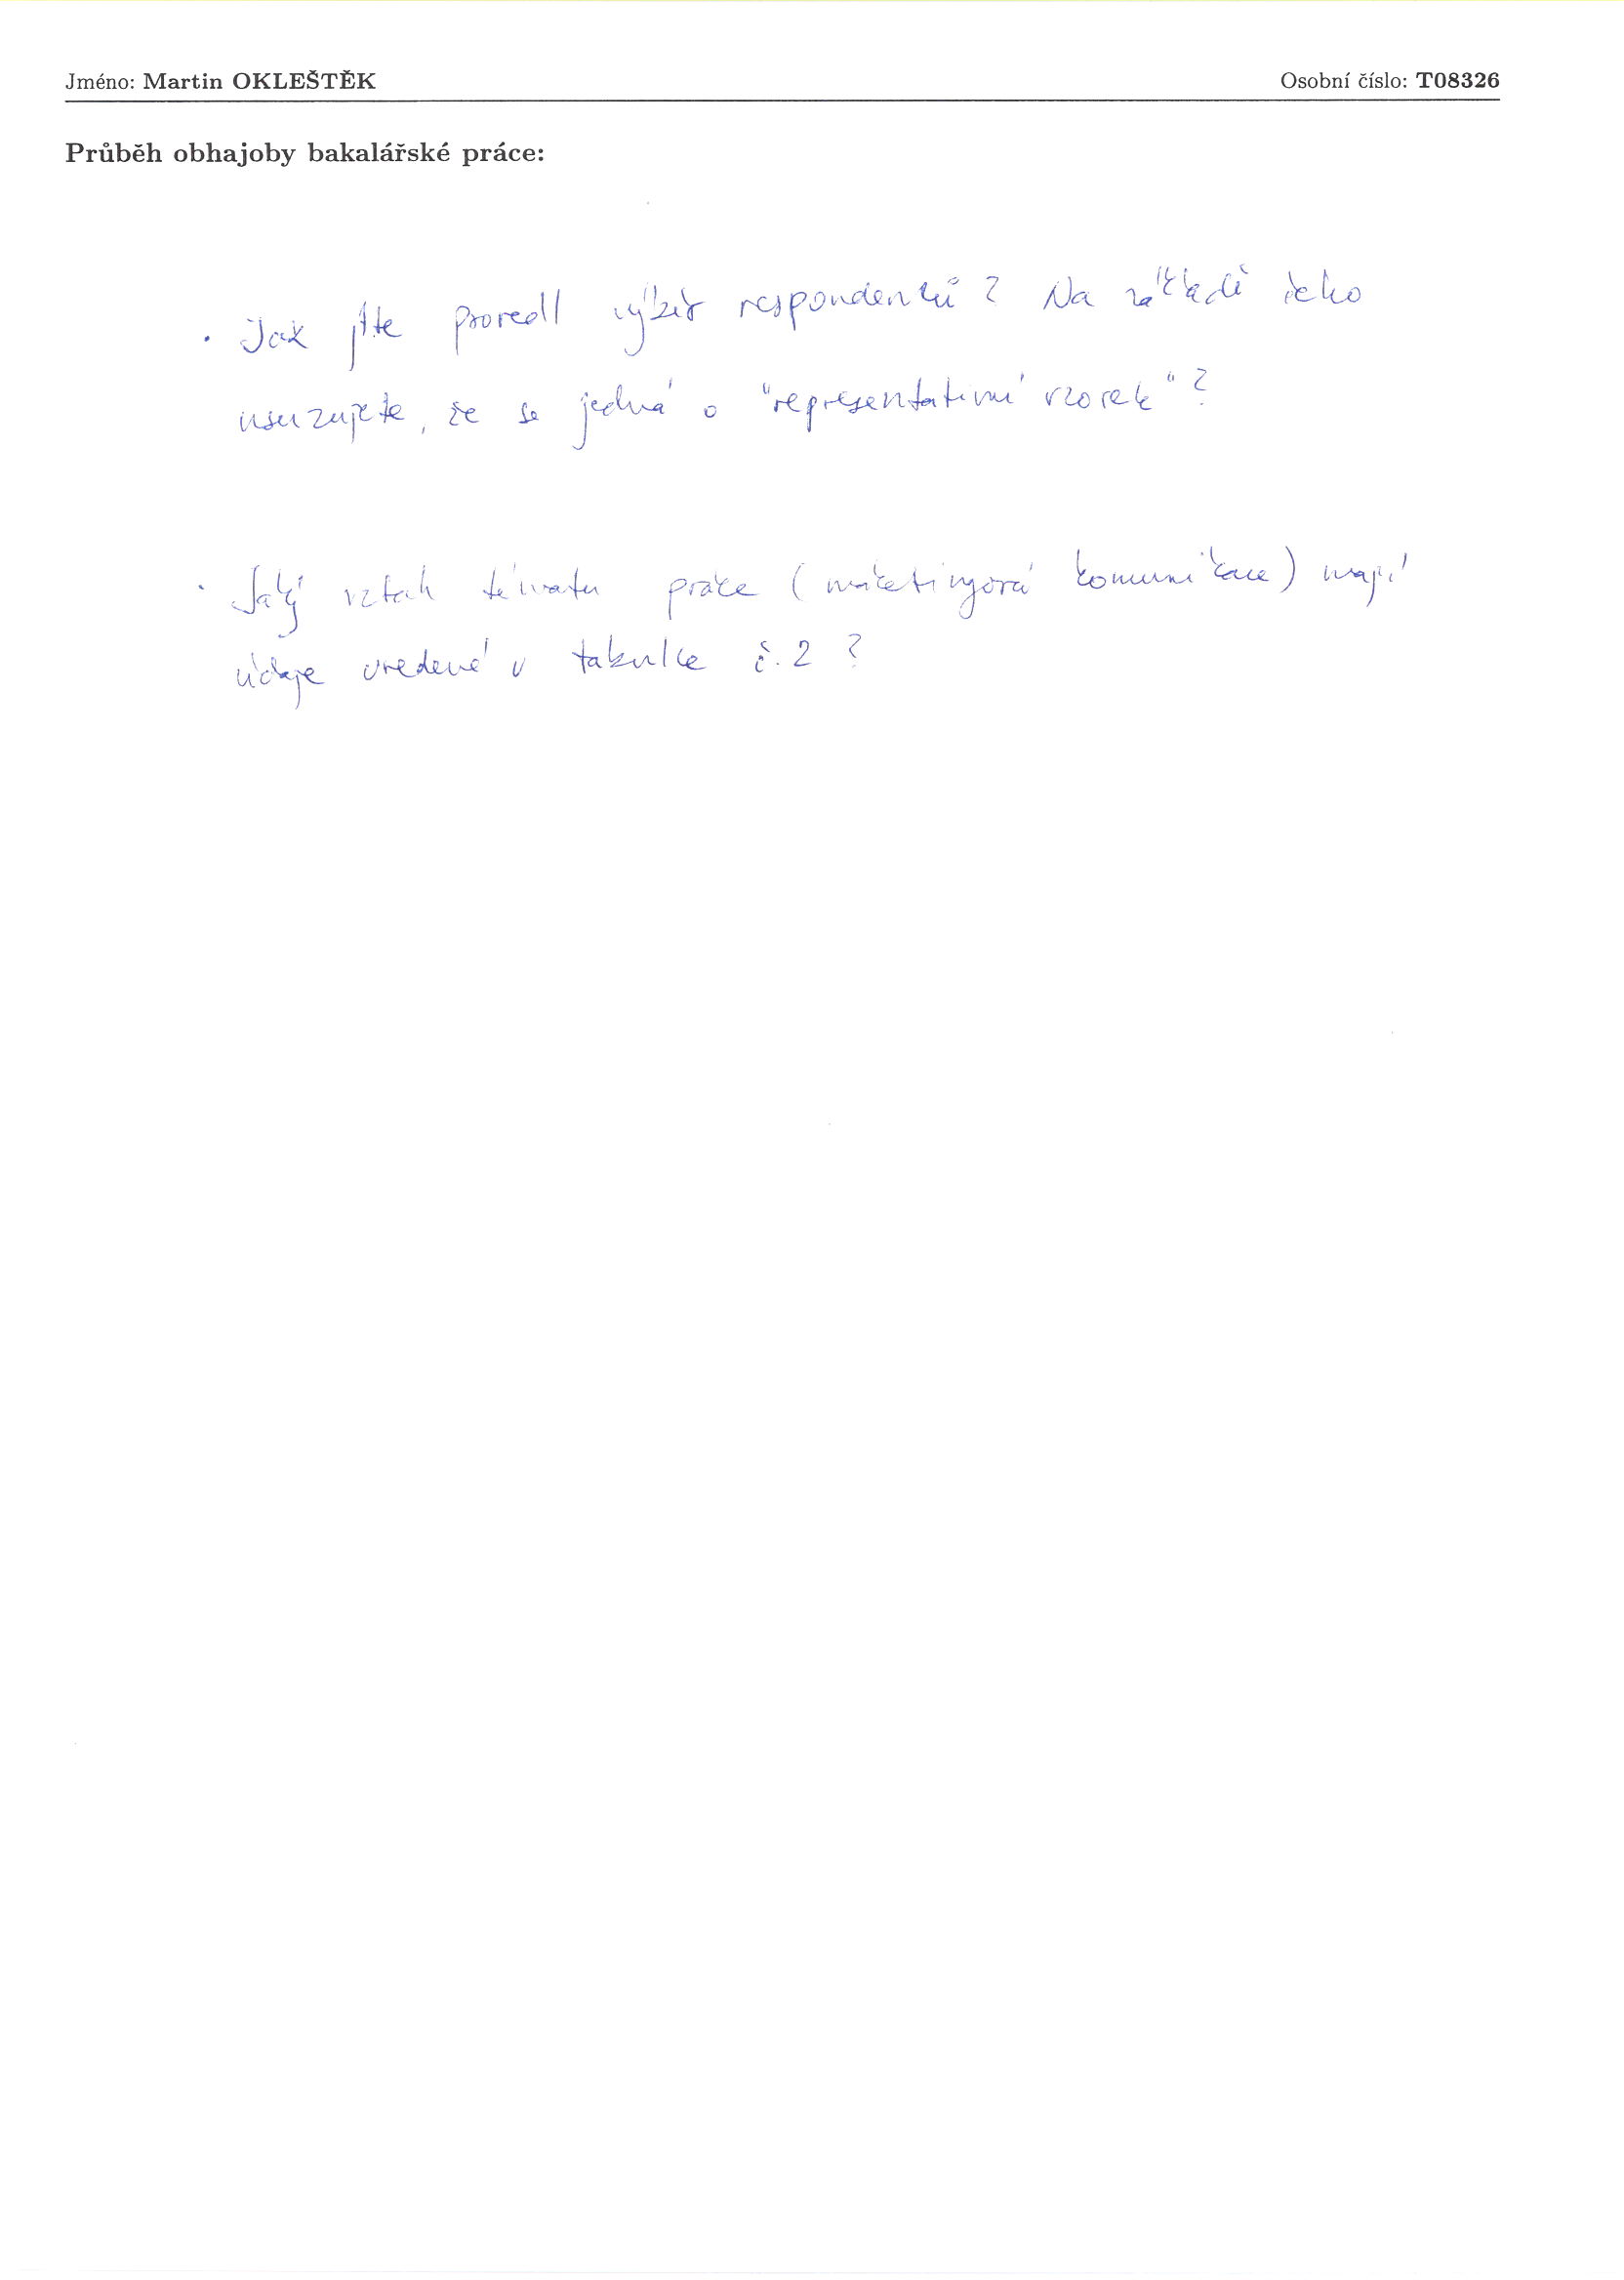 Jméno: Martin OKLEŠTĚK Osobní číslo: T08326
Průběh obhajoby bakalářské práce:
· Jak jste provedl výběr respondentů? Na základě čeho
usuzujete, že se jedná o "representativní vzorek"?
· Jaký vztah tématu práce (marketingová komunikace) mají
údaje uvedené v tabulce č. 2?